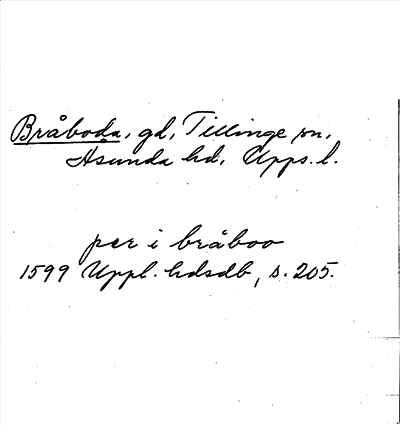 Bråboda, gd, Tillinge sn,
Åsunda hd, Upps. l.
per i bråboo
1599 Uppl. hdsdb, s. 205.